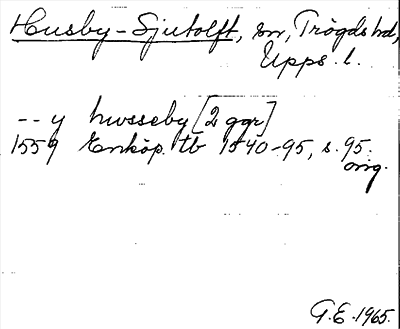 Husby-Sjutolft, sn, Trögds hd,
Upps. l.
-- y husseby [2 ggr]
1559 Enköp. tb 1540-95, s. 95.
orig.
G.E. 1965.